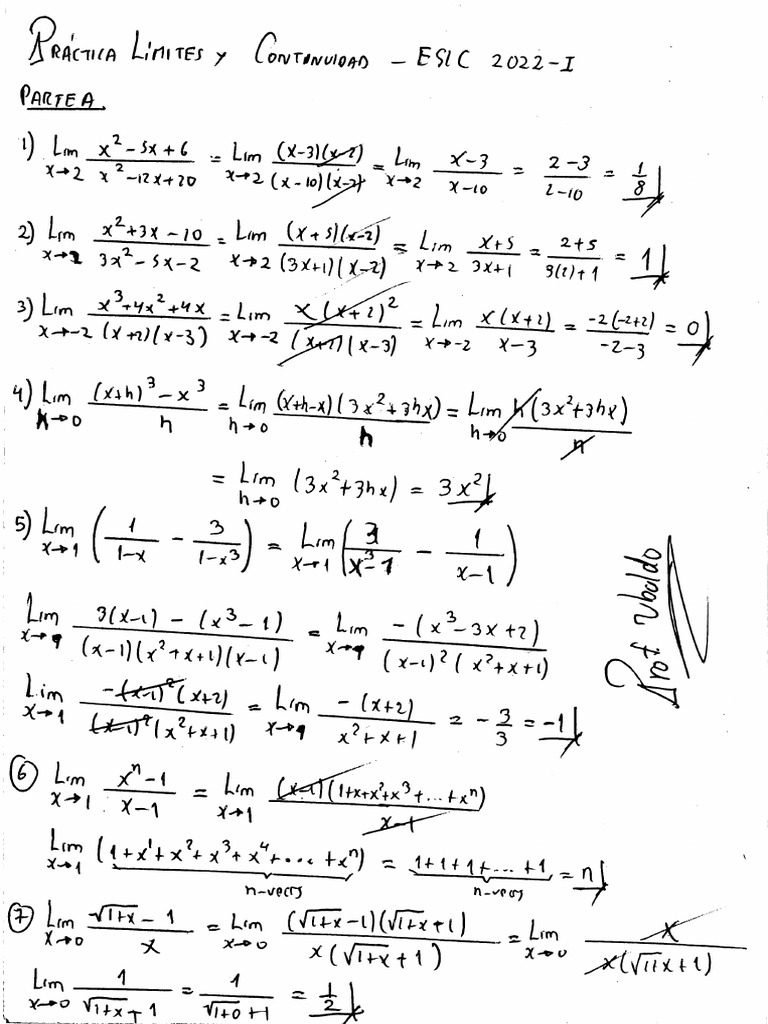 PRÁCTICA LÍMITES Y CONTINUIDAD - ESIC 2022-I
PARTE A.
1) Lim x→2 (x² - 5x + 6)/(x² - 12x + 20) = Lim x→2 (x-3)(x-2)/(x-10)(x-2) = Lim x→2 (x-3)/(x-10) = (2-3)/(2-10) = 1/8
2) Lim x→2 (x² + 3x - 10)/(3x² - 5x - 2) = Lim x→2 (x+5)(x-2)/(3x+1)(x-2) = Lim x→2 (x+5)/(3x+1) = (2+5)/(3(2)+1) = 1
3) Lim x→-2 (x³ + 4x² + 4x)/(x+2)(x-3) = Lim x→-2 x(x+2)²/(x+2)(x-3) = Lim x→-2 x(x+2)/(x-3) = -2(-2+2)/(-2-3) = 0
4) Lim h→0 ((x+h)³ - x³)/h = Lim h→0 (x+h-x)(3x²+3hx)/h = Lim h→0 h(3x²+3hx)/h
= Lim h→0 (3x²+3hx) = 3x²
5) Lim x→1 (1/(1-x) - 3/(1-x³)) = Lim x→1 (3/(x³-1) - 1/(x-1))
Lim x→1 (3(x-1) - (x³-1))/((x-1)(x²+x+1)(x-1)) = Lim x→1 -(x³-3x+2)/((x-1)²(x²+x+1))
Lim x→1 -(x-1)²(x+2)/((x-1)²(x²+x+1)) = Lim x→1 -(x+2)/(x²+x+1) = -3/3 = -1
Prof Ubaldo
6) Lim x→1 (xⁿ-1)/(x-1) = Lim x→1 (x-1)(1+x+x²+x³+...+xⁿ)/(x-1)
Lim x→1 (1+x¹+x²+x³+x⁴+...+xⁿ) = 1+1+1+...+1 = n
n-veces n-veces
7) Lim x→0 (√(1+x) - 1)/x = Lim x→0 (√(1+x)-1)(√(1+x)+1)/(x(√(1+x)+1)) = Lim x→0 x/(x(√(1+x)+1))
Lim x→0 1/(√(1+x)+1) = 1/(√(1+0)+1) = 1/2